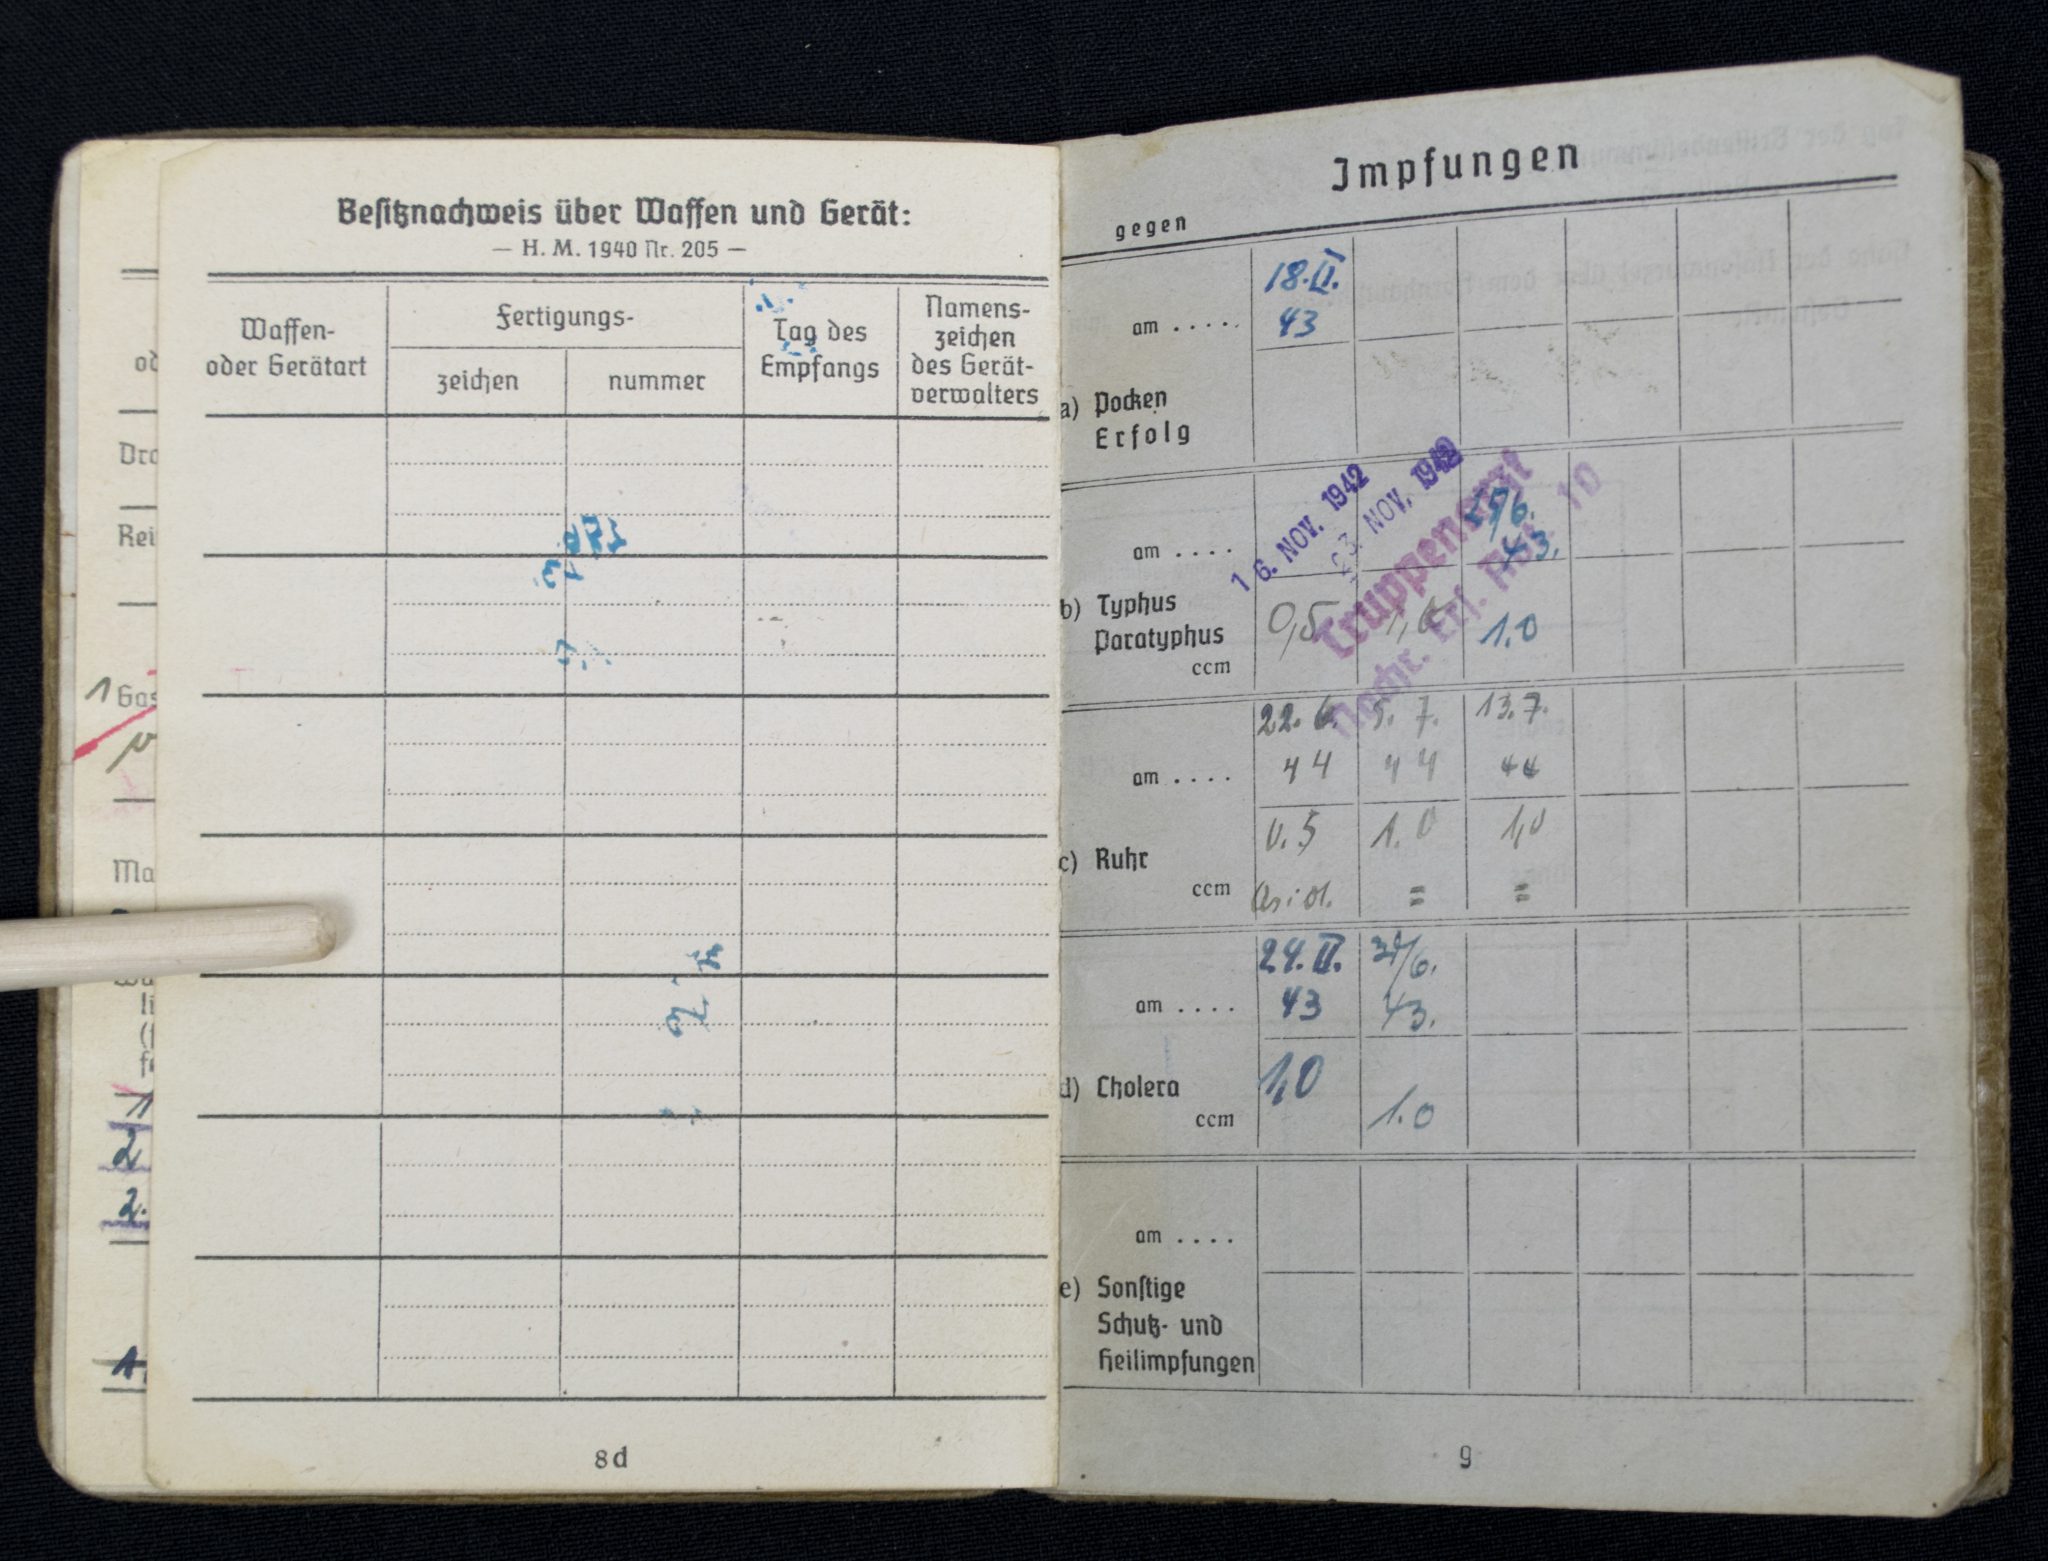 Besitznachweis über Waffen und Gerät:
— H. M. 1940 Nr. 205 —
Waffen-
oder Gerätart
Fertigungs-
zeichen
nummer
Tag des
Empfangs
Namens-
zeichen
des Gerät-
verwalters
8d
Impfungen
gegen
18.II.
am . . . . . 43
a) Pocken
Erfolg
16. NOV. 1942 23. NOV. 1942 25/6.
am . . . . 43.
Truppenarzt
Nachr. Ers. Abt. 10
b) Typhus
Paratyphus
ccm
0,5 1,0 1.0
22. 6. 5. 7. 13. 7.
am . . . . 44 44 44
0.5 1.0 1,0
c) Ruhr
ccm = =
24. II.
am . . . . 43 43.
d) Cholera 1,0
ccm 1.0
am . . . .
e) Sonstige
Schutz- und
Heilimpfungen
9